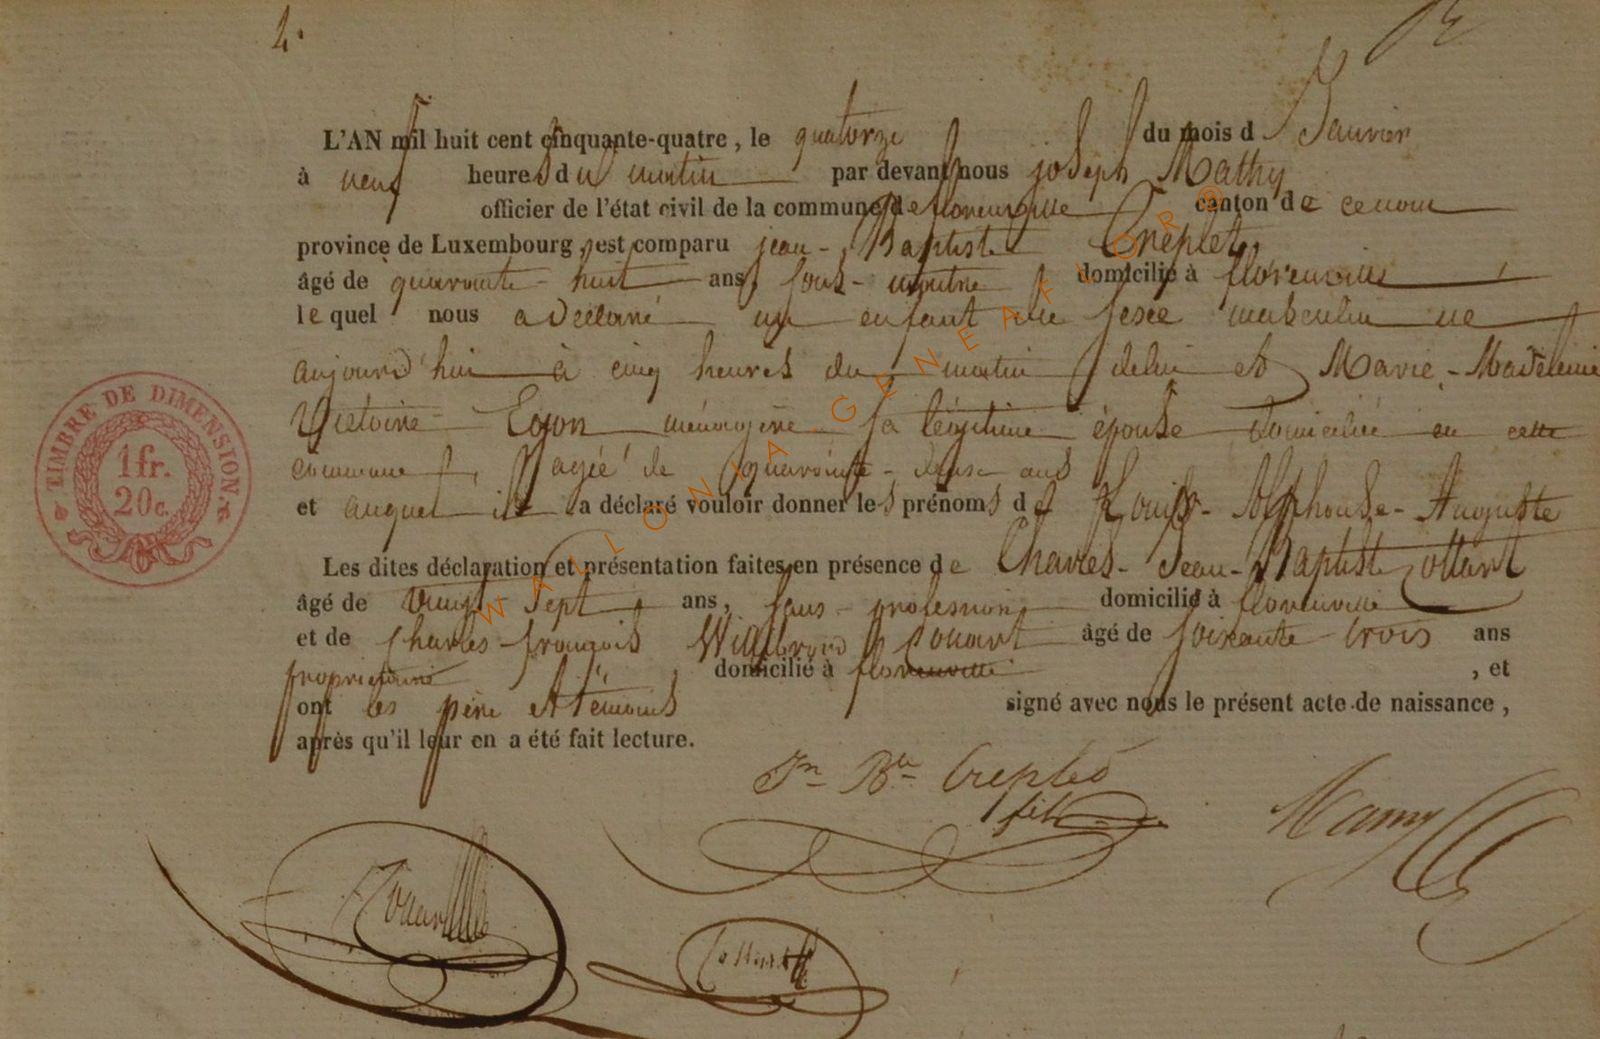 4.
L'AN mil huit cent cinquante-quatre, le quatorze du mois de Janvier
à neuf heures du matin par devant nous joseph Mathy
officier de l'état civil de la commune de florenville canton de ce nom
province de Luxembourg, est comparu jean-Baptiste Créplet,
âgé de quarante-huit ans, sous-maitre domicilié à florenville
le quel nous a déclaré un enfant du sexe masculin né
aujourd'hui à cinq heures du matin de lui et Marie-Madeleine
Victoire Egon ménagère sa légitime épouse domiciliée en cette
commune, agée de quarante-deux ans
et auquel il a déclaré vouloir donner les prénoms de Louis-Alphonse-Auguste
Les dites déclaration et présentation faites en présence de Charles-Jean-Baptiste
âgé de vingt-sept ans, sans profession domicilié à florenville
et de Charles-françois âgé de soixante-trois ans
propriétaire domicilié à florenville, et
ont les père et témoins signé avec nous le présent acte de naissance,
après qu'il leur en a été fait lecture.
TIMBRE DE DIMENSION.
1 fr.
20 c.
WALLONIA GENEAFLOR®
Jn Bte Creplet